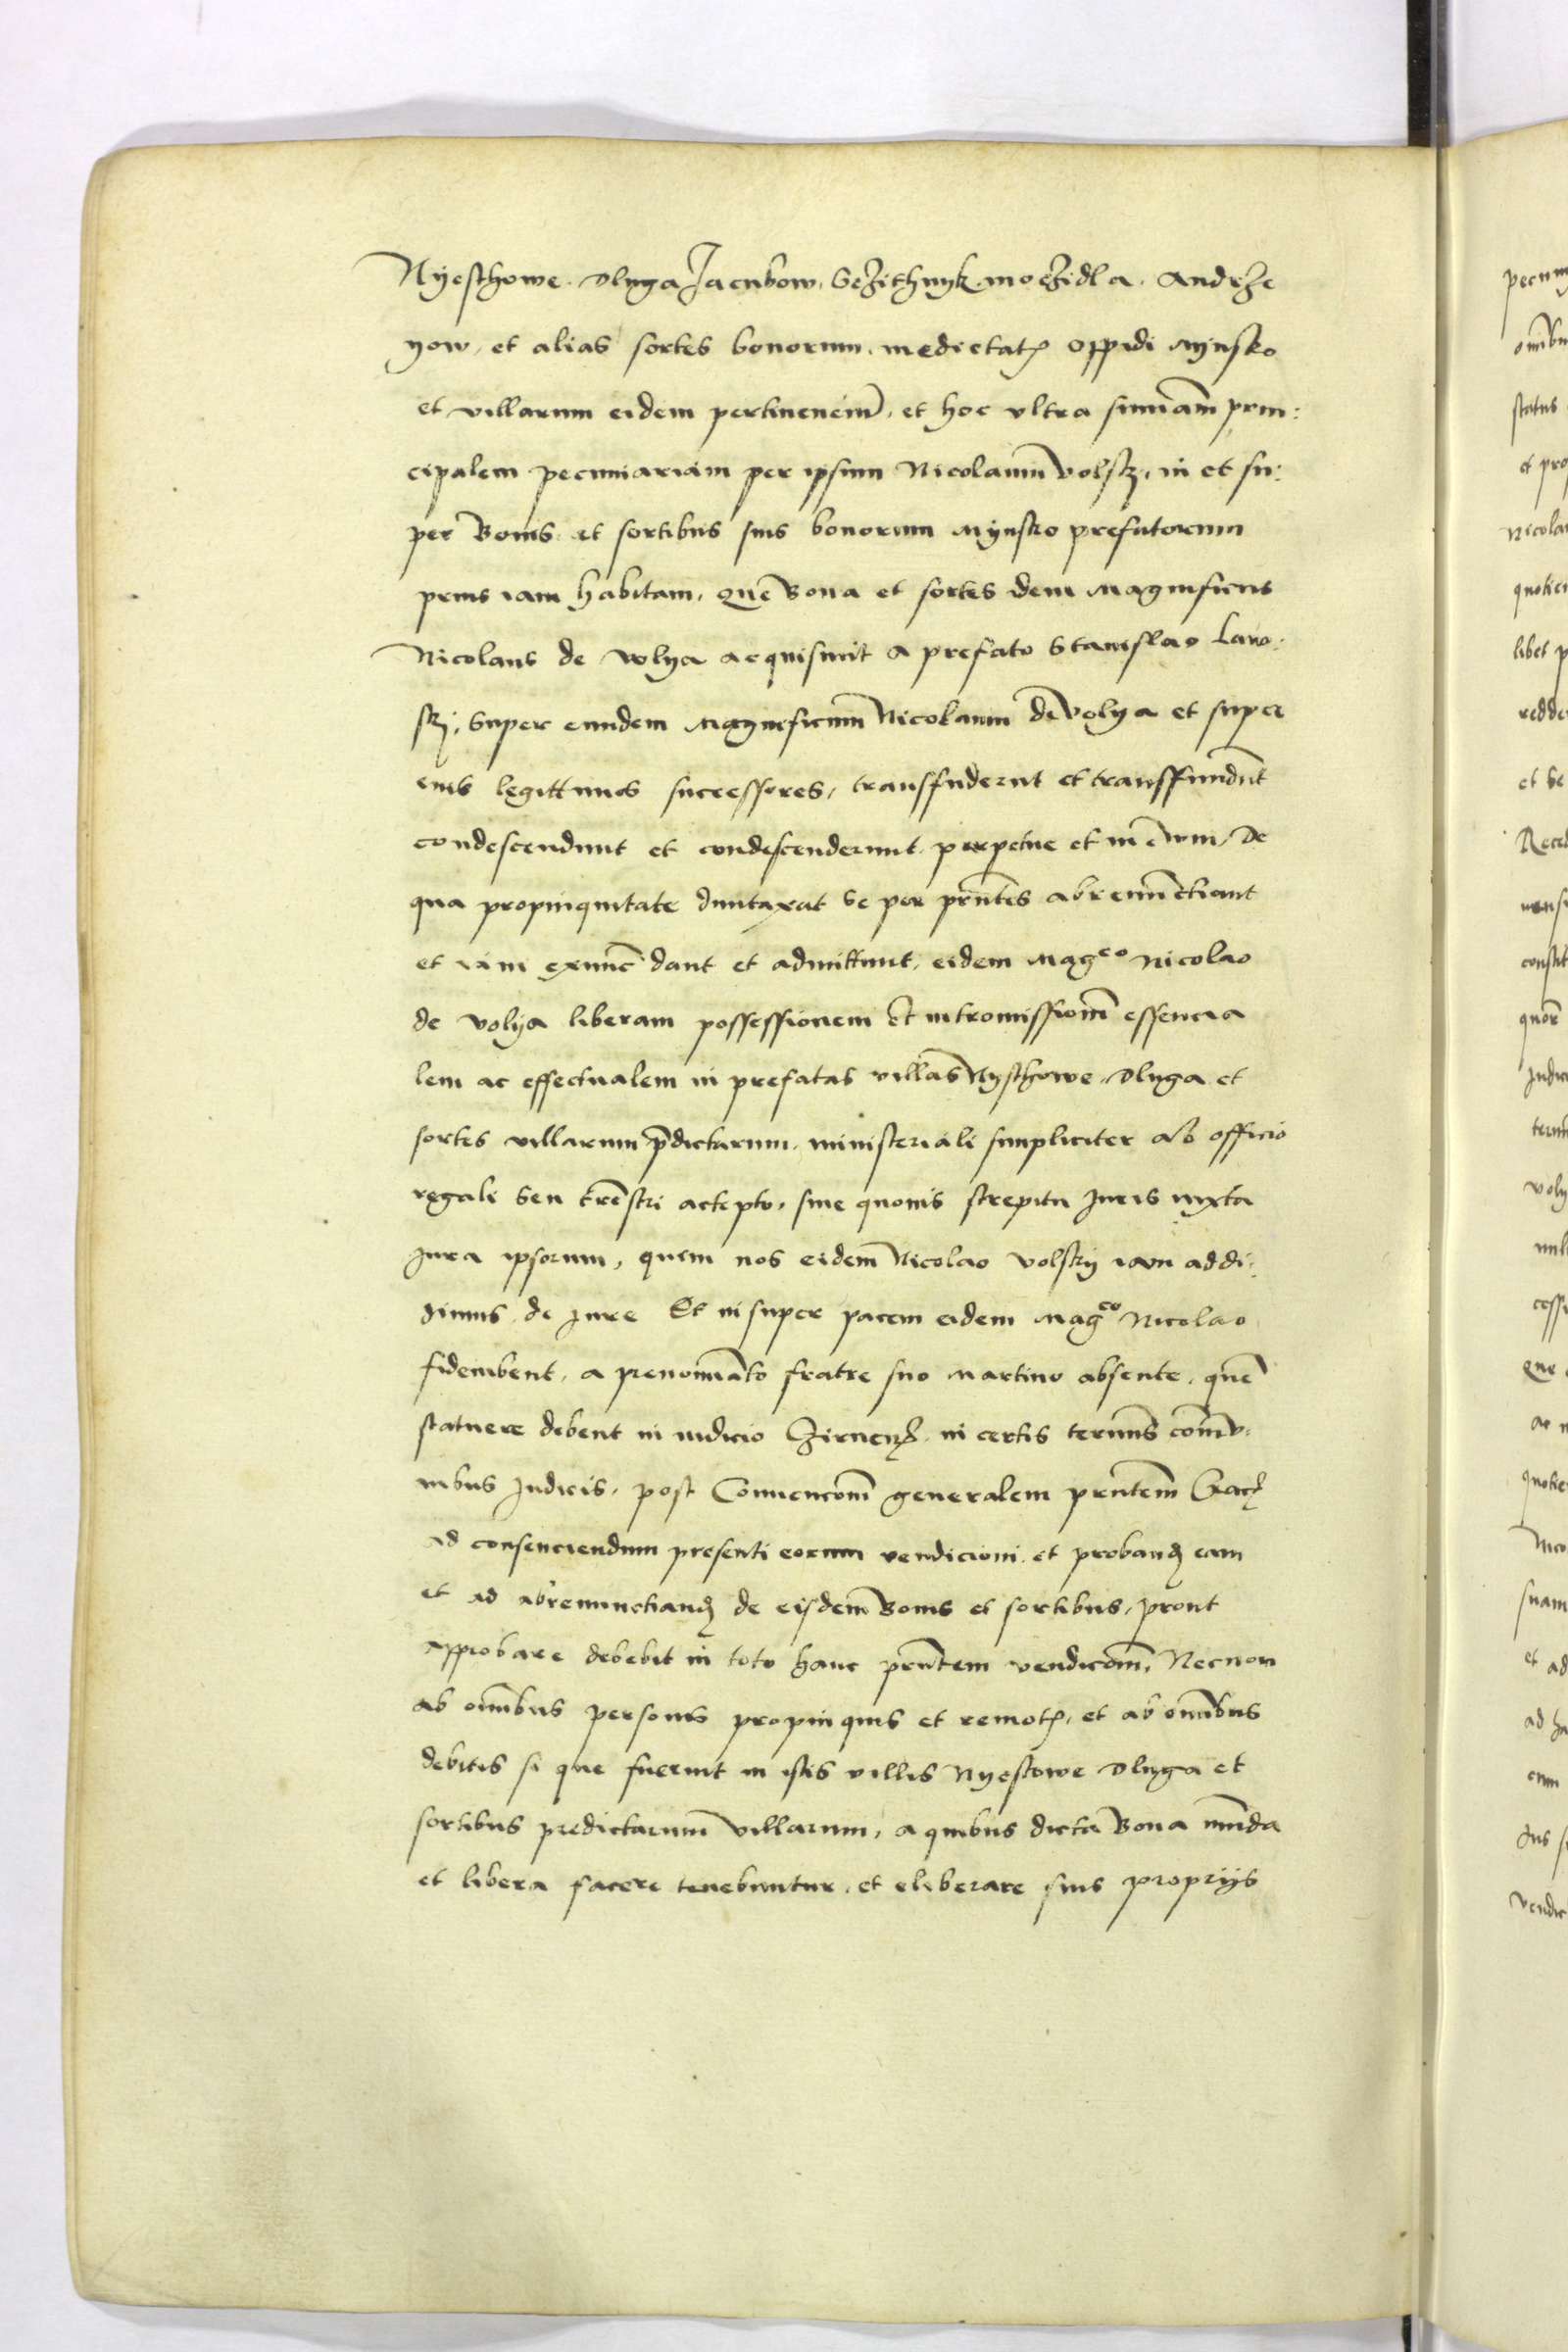 Nyesthowe. Dluga Jacubow. Sezithnyk. moczidla. Andrze
yow, et alias sortes bonorum, medietatꝭ oppidi Mynsko
et villarum eidem pertinenciũ, et hoc vltra sum̃am prin:
cipalem pecuniariam per ipsum Nicolaum Volskj, in et su:
per Bonis et sortibus suis bonorum Mynsko prefatorum
prius iam habitam, que Bona et sortes idem Magnificus
Nicolaus de Wolya acquisiuit a prefato Stanislao Lawo:
skj, Super eundem Magnificum Nicolaum de Volya et super
eius legittimos successores, transfuderunt et transffundũt
condescendunt et condescenderunt. perpetue et in ẽwm, De
qua propinquitate duntaxat se per prñtes abrenũctiant
et iam exnunc dant et admittunt, eidem Mag^co Nicolao
de Volya liberam possessionem et intromissionẽ essencia
lem ac effectualem in prefatas villas Nysthowe. Dluga et
sortes villarum p̃dictarum. ministeriali simpliciter ab officio
regali seu trẽstri accepto, sine quouis strepitu Juris iuxta
Jura ipsorum, quem nos eidem Nicolao Volskij iam addi:
dimus de Jure Et in super pacem eidem Mag^co Nicolao
fideiubent, a prenominato fratre suo Martino absente, quẽ
statuere debent in iudicio Czirneñ. in certis terminis commu:
nibus Judicis, post Conuencionẽ generalem prñtem Crac̃
ad consenciendum presenti eorum vendicioni. et probanď eam
et ad abrenunctianď de eisdem Bonis et sortibus, prout
approbare debebit in toto hanc prñtem vendicõem, Necnon
ab omnibus personis propinquis et remotꝭ, et ab omnibus
debitis si que fuerint in istis villis Nyestowe Dluga et
sortibus predictarum villarum, a quibus dicta Bona munda
et libera facere tenebuntur, et eliberare suis propriis